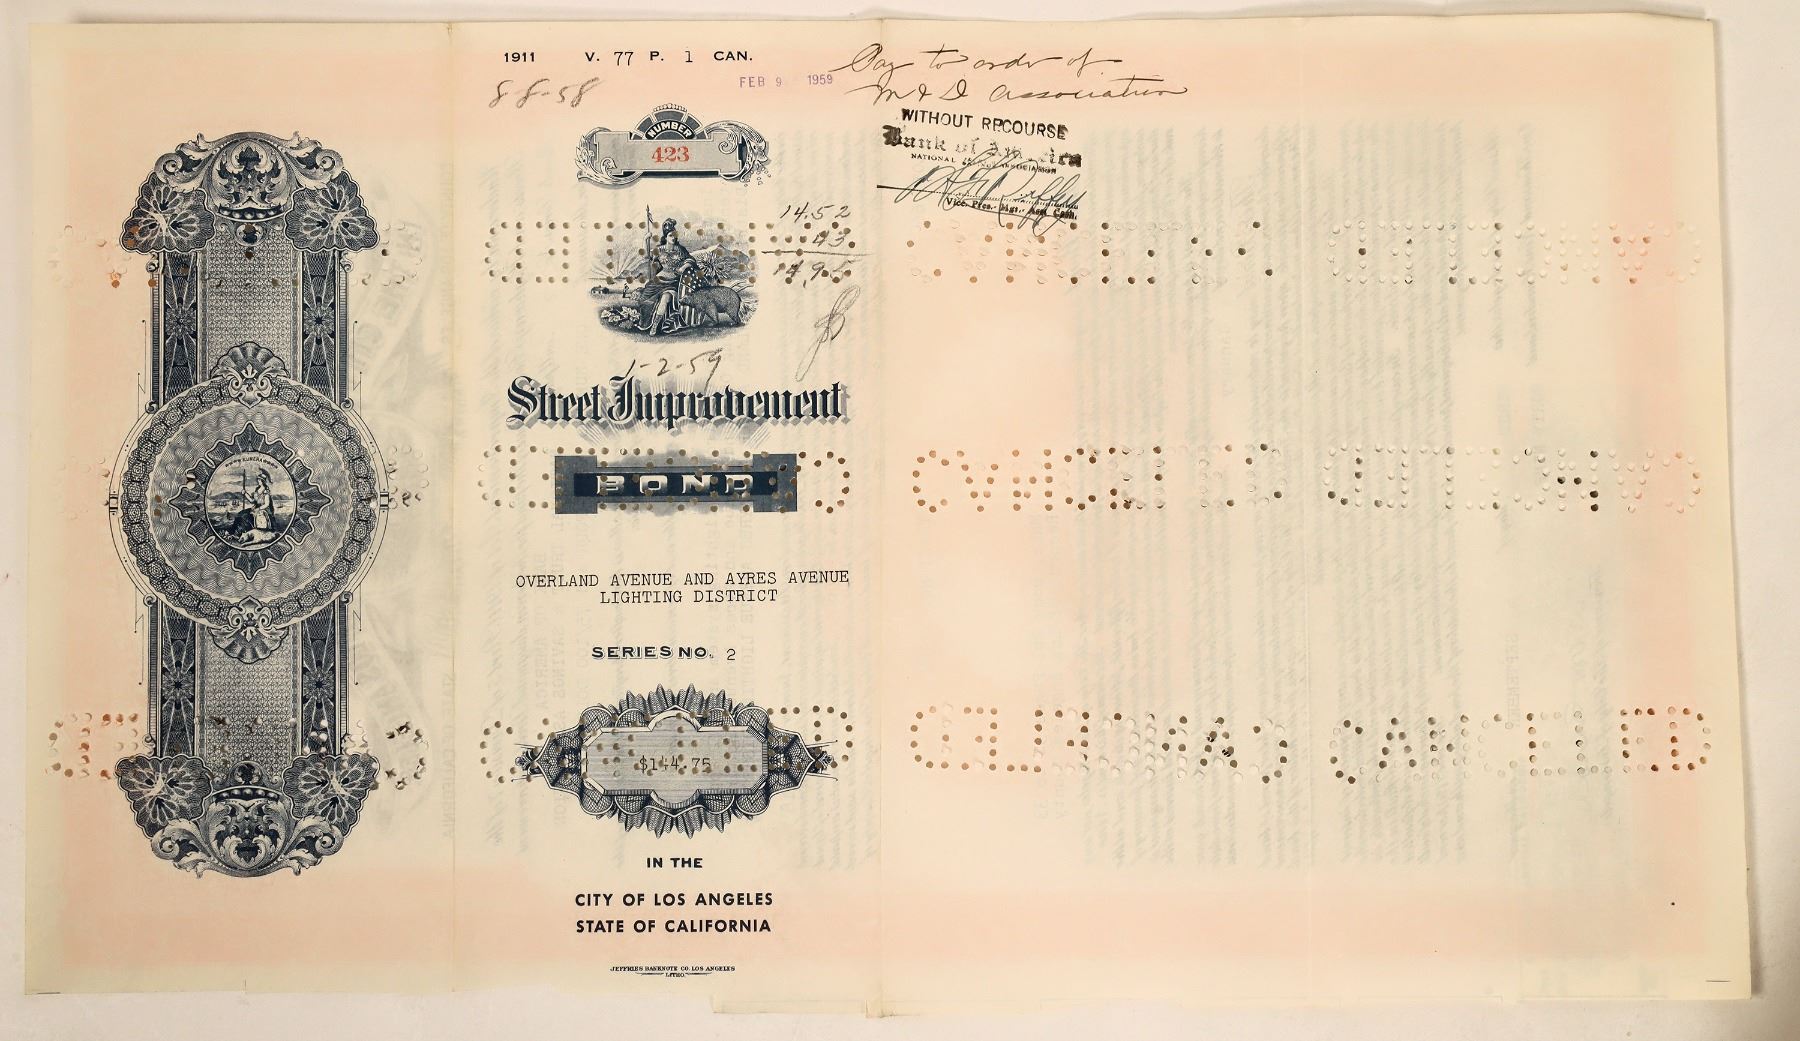 1911 V. 77 P. 1 CAN.
8-8-58
FEB 9 1959
Pay to order of
M & D Association
WITHOUT RECOURSE
Bank of America
NATIONAL ASSOCIATION
Vice Pres. Mgr. Asst. Cash.
NUMBER
423
14.52
.43
14.95
1-2-59
Street Improvement
BOND
OVERLAND AVENUE AND AYRES AVENUE
LIGHTING DISTRICT
SERIES NO. 2
$144.75
IN THE
CITY OF LOS ANGELES
STATE OF CALIFORNIA
JEFFRIES BANKNOTE CO. LOS ANGELES
LITHO.
EUREKA
CANCELED
CANCELED
CANCELED
CANCELED
CANCELED
CANCELED
CANCELED
CANCELED
CANCELED